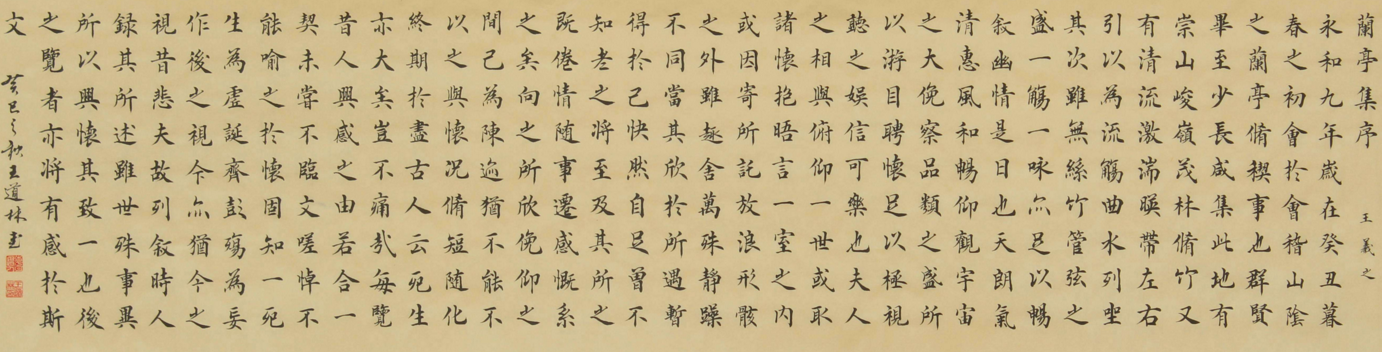 蘭亭集序 王羲之
永和九年歲在癸丑暮
春之初會於會稽山陰
之蘭亭脩稧事也群賢
畢至少長咸集此地有
崇山峻嶺茂林脩竹又
有清流激湍暎帶左右
引以為流觴曲水列坐
其次雖無絲竹管弦之
盛一觴一咏亦足以暢
敘幽情是日也天朗氣
清惠風和暢仰觀宇宙
之大俛察品類之盛所
以游目騁懷足以極視
聽之娛信可樂也夫人
之相與俯仰一世或取
諸懷抱晤言一室之內
或因寄所託放浪形骸
之外雖趣舍萬殊靜躁
不同當其欣於所遇暫
得於己快然自足曾不
知老之將至及其所之
既倦情隨事遷感慨系
之矣向之所欣俛仰之
間已為陳迹猶不能不
以之興懷況脩短隨化
終期於盡古人云死生
亦大矣豈不痛哉每覽
昔人興感之由若合一
契未嘗不臨文嗟悼不
能喻之於懷固知一死
生為虛誕齊彭殤為妄
作後之視今亦猶今之
視昔悲夫故列敘時人
錄其所述雖世殊事異
所以興懷其致一也後
之覽者亦將有感於斯
文
癸巳之秋王道林書